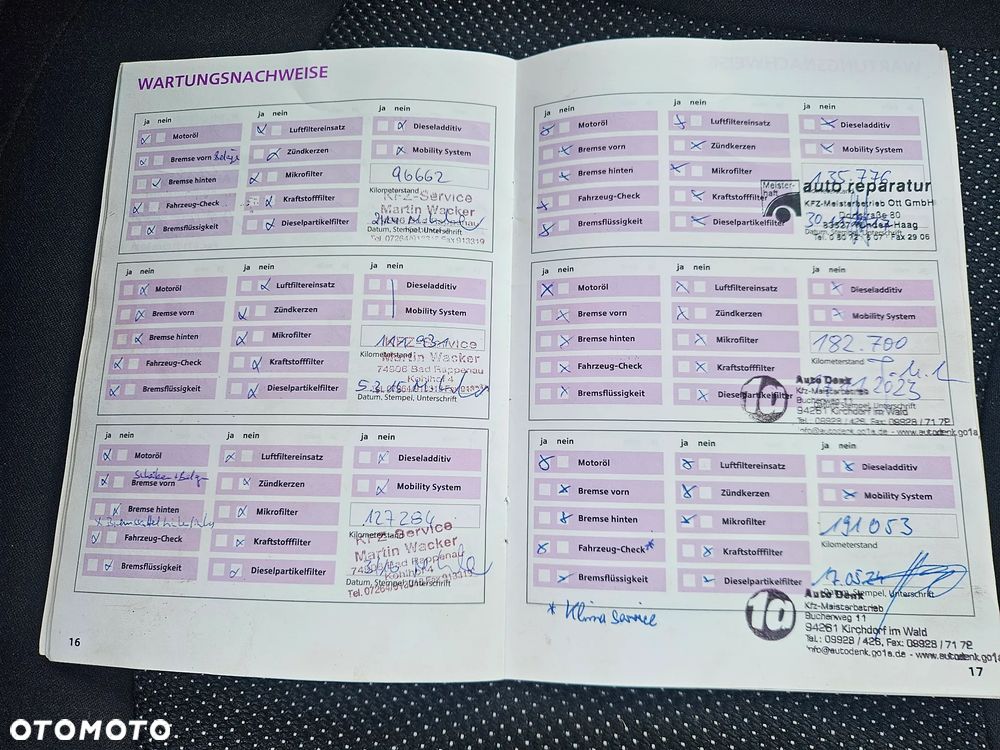 WARTUNGSNACHWEISE
ja nein
Motoröl
Bremse vorn Beläge
Bremse hinten
Fahrzeug-Check
Bremsflüssigkeit
ja nein
Luftfiltereinsatz
Zündkerzen
Mikrofilter
Kraftstoffilter
Dieselpartikelfilter
ja nein
Dieseladditiv
Mobility System
96662
Kilometerstand
KFZ-Service
Martin Wacker
ja nein
Motoröl
Bremse vorn
Bremse hinten
Fahrzeug-Check
Bremsflüssigkeit
ja nein
Luftfiltereinsatz
Zündkerzen
Mikrofilter
Kraftstoffilter
Dieselpartikelfilter
ja nein
Dieseladditiv
Mobility System
Kilometerstand
KFZ-Service
Martin Wacker
74906 Bad Rappenau
Kohlhof 4
Datum, Stempel, Unterschrift
ja nein
Motoröl
Bremse vorn
Bremse hinten
Fahrzeug-Check
Bremsflüssigkeit
ja nein
Luftfiltereinsatz
Zündkerzen
Mikrofilter
Kraftstoffilter
Dieselpartikelfilter
ja nein
Dieseladditiv
Mobility System
127284
Kilometerstand
KFZ-Service
Martin Wacker
74906 Bad Rappenau
Kohlhof 4
Datum, Stempel, Unterschrift
16
ja nein
Motoröl
Bremse vorn
Bremse hinten
Fahrzeug-Check
Bremsflüssigkeit
ja nein
Luftfiltereinsatz
Zündkerzen
Mikrofilter
Kraftstoffilter
Dieselpartikelfilter
ja nein
Dieseladditiv
Mobility System
135.776
Meister-
haft
auto reparatur
KFZ-Meisterbetrieb Ott GmbH
Datum, Stempel, Unterschrift
ja nein
Motoröl
Bremse vorn
Bremse hinten
Fahrzeug-Check
Bremsflüssigkeit
ja nein
Luftfiltereinsatz
Zündkerzen
Mikrofilter
Kraftstoffilter
Dieselpartikelfilter
ja nein
Dieseladditiv
Mobility System
182.700
Kilometerstand
1a
Auto Denk
Kfz-Meisterbetrieb
Buchenweg 11
94261 Kirchdorf im Wald
Tel.: 09928 / 426, Fax: 09928 / 71 72
info@autodenk.go1a.de - www.autodenk.go1a
ja nein
Motoröl
Bremse vorn
Bremse hinten
Fahrzeug-Check*
Bremsflüssigkeit
ja nein
Luftfiltereinsatz
Zündkerzen
Mikrofilter
Kraftstoffilter
Dieselpartikelfilter
ja nein
Dieseladditiv
Mobility System
191053
Kilometerstand
17.05.24
* Klima Service
1a
Auto Denk
Kfz-Meisterbetrieb
Buchenweg 11
94261 Kirchdorf im Wald
Tel.: 09928 / 426, Fax: 09928 / 71 72
info@autodenk.go1a.de - www.autodenk.go1a
17
OTOMOTO